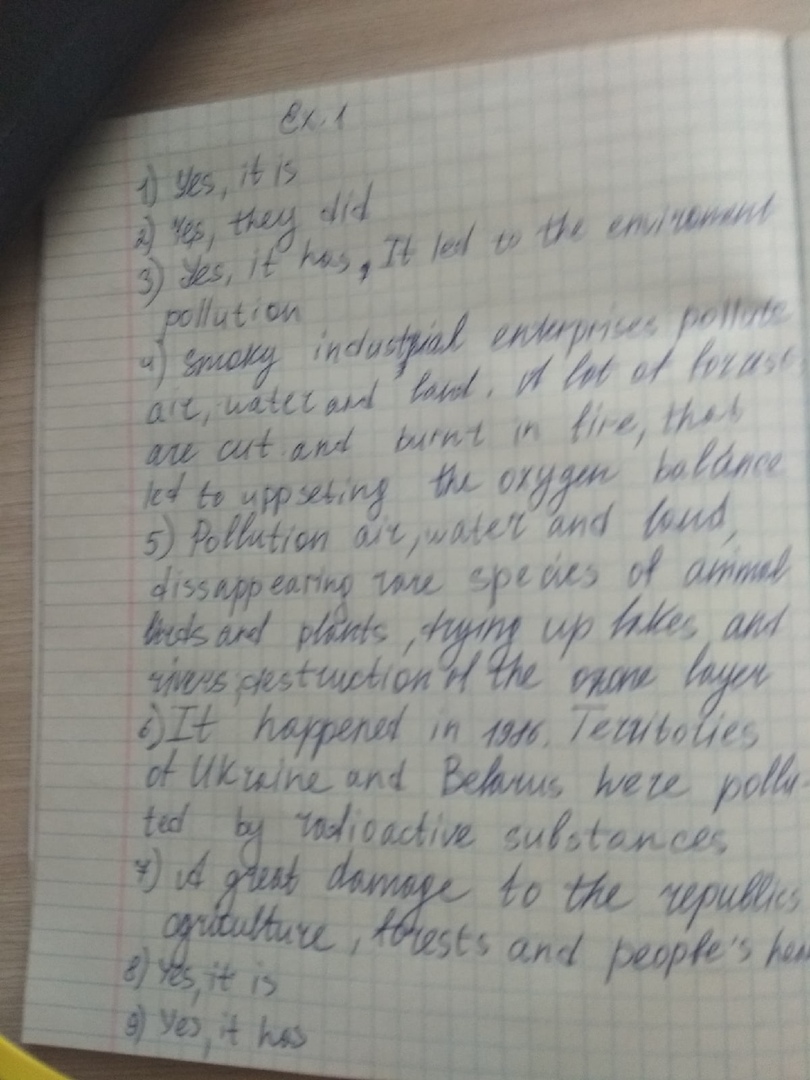 Ex. 1
1) Yes, it is
2) Yes, they did
3) Yes, it has, It led to the enviroment
pollution
4) Smoky industrial enterprises pollute
air, water and land. A lot of forests
are cut and burnt in fire, that
led to uppseting the oxygen ballance
5) Pollution air, water and land,
dissappearing rare species of animal
birds and plants, drying up lakes and
rivers, destruction of the ozone layer
6) It happened in 1986. Territories
of Ukraine and Belarus were pollu-
ted by radioactive substances
7) A great damage to the republics
agriculture, forests and people's
8) Yes, it is
9) Yes, it has